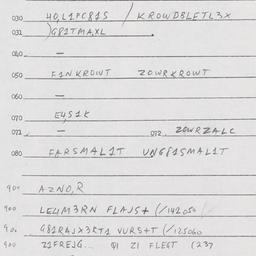 030 HO,L1PC81S / KROWDBLETL3X
031 )G81TMA,XL .
040 —
050 F1NKROWT ZOWRKROWT
060 —
070 E4S1K
071 — 072. ZOWRZALC
080 FARSMAL1T UNG81SMAL1T
AZNO,R
900 LE4M3RN FLAJS+ (/142050
VURS+T (/125060
900 Z1FREJG... 41 Z1 FLEGT (237